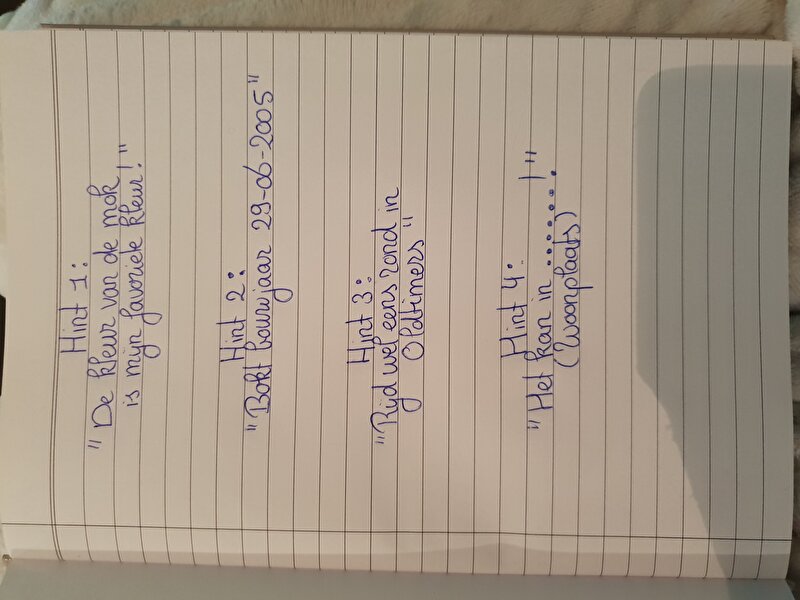 Hint 1:
"De kleur van de mok
is mijn favoriete kleur!"
Hint 2:
"Bokt bouwjaar 29-06-2005"
Hint 3:
"Rijd wel eens rond in
Oldtimers"
Hint 4:
"Het kan in ........!"
(Woonplaats)